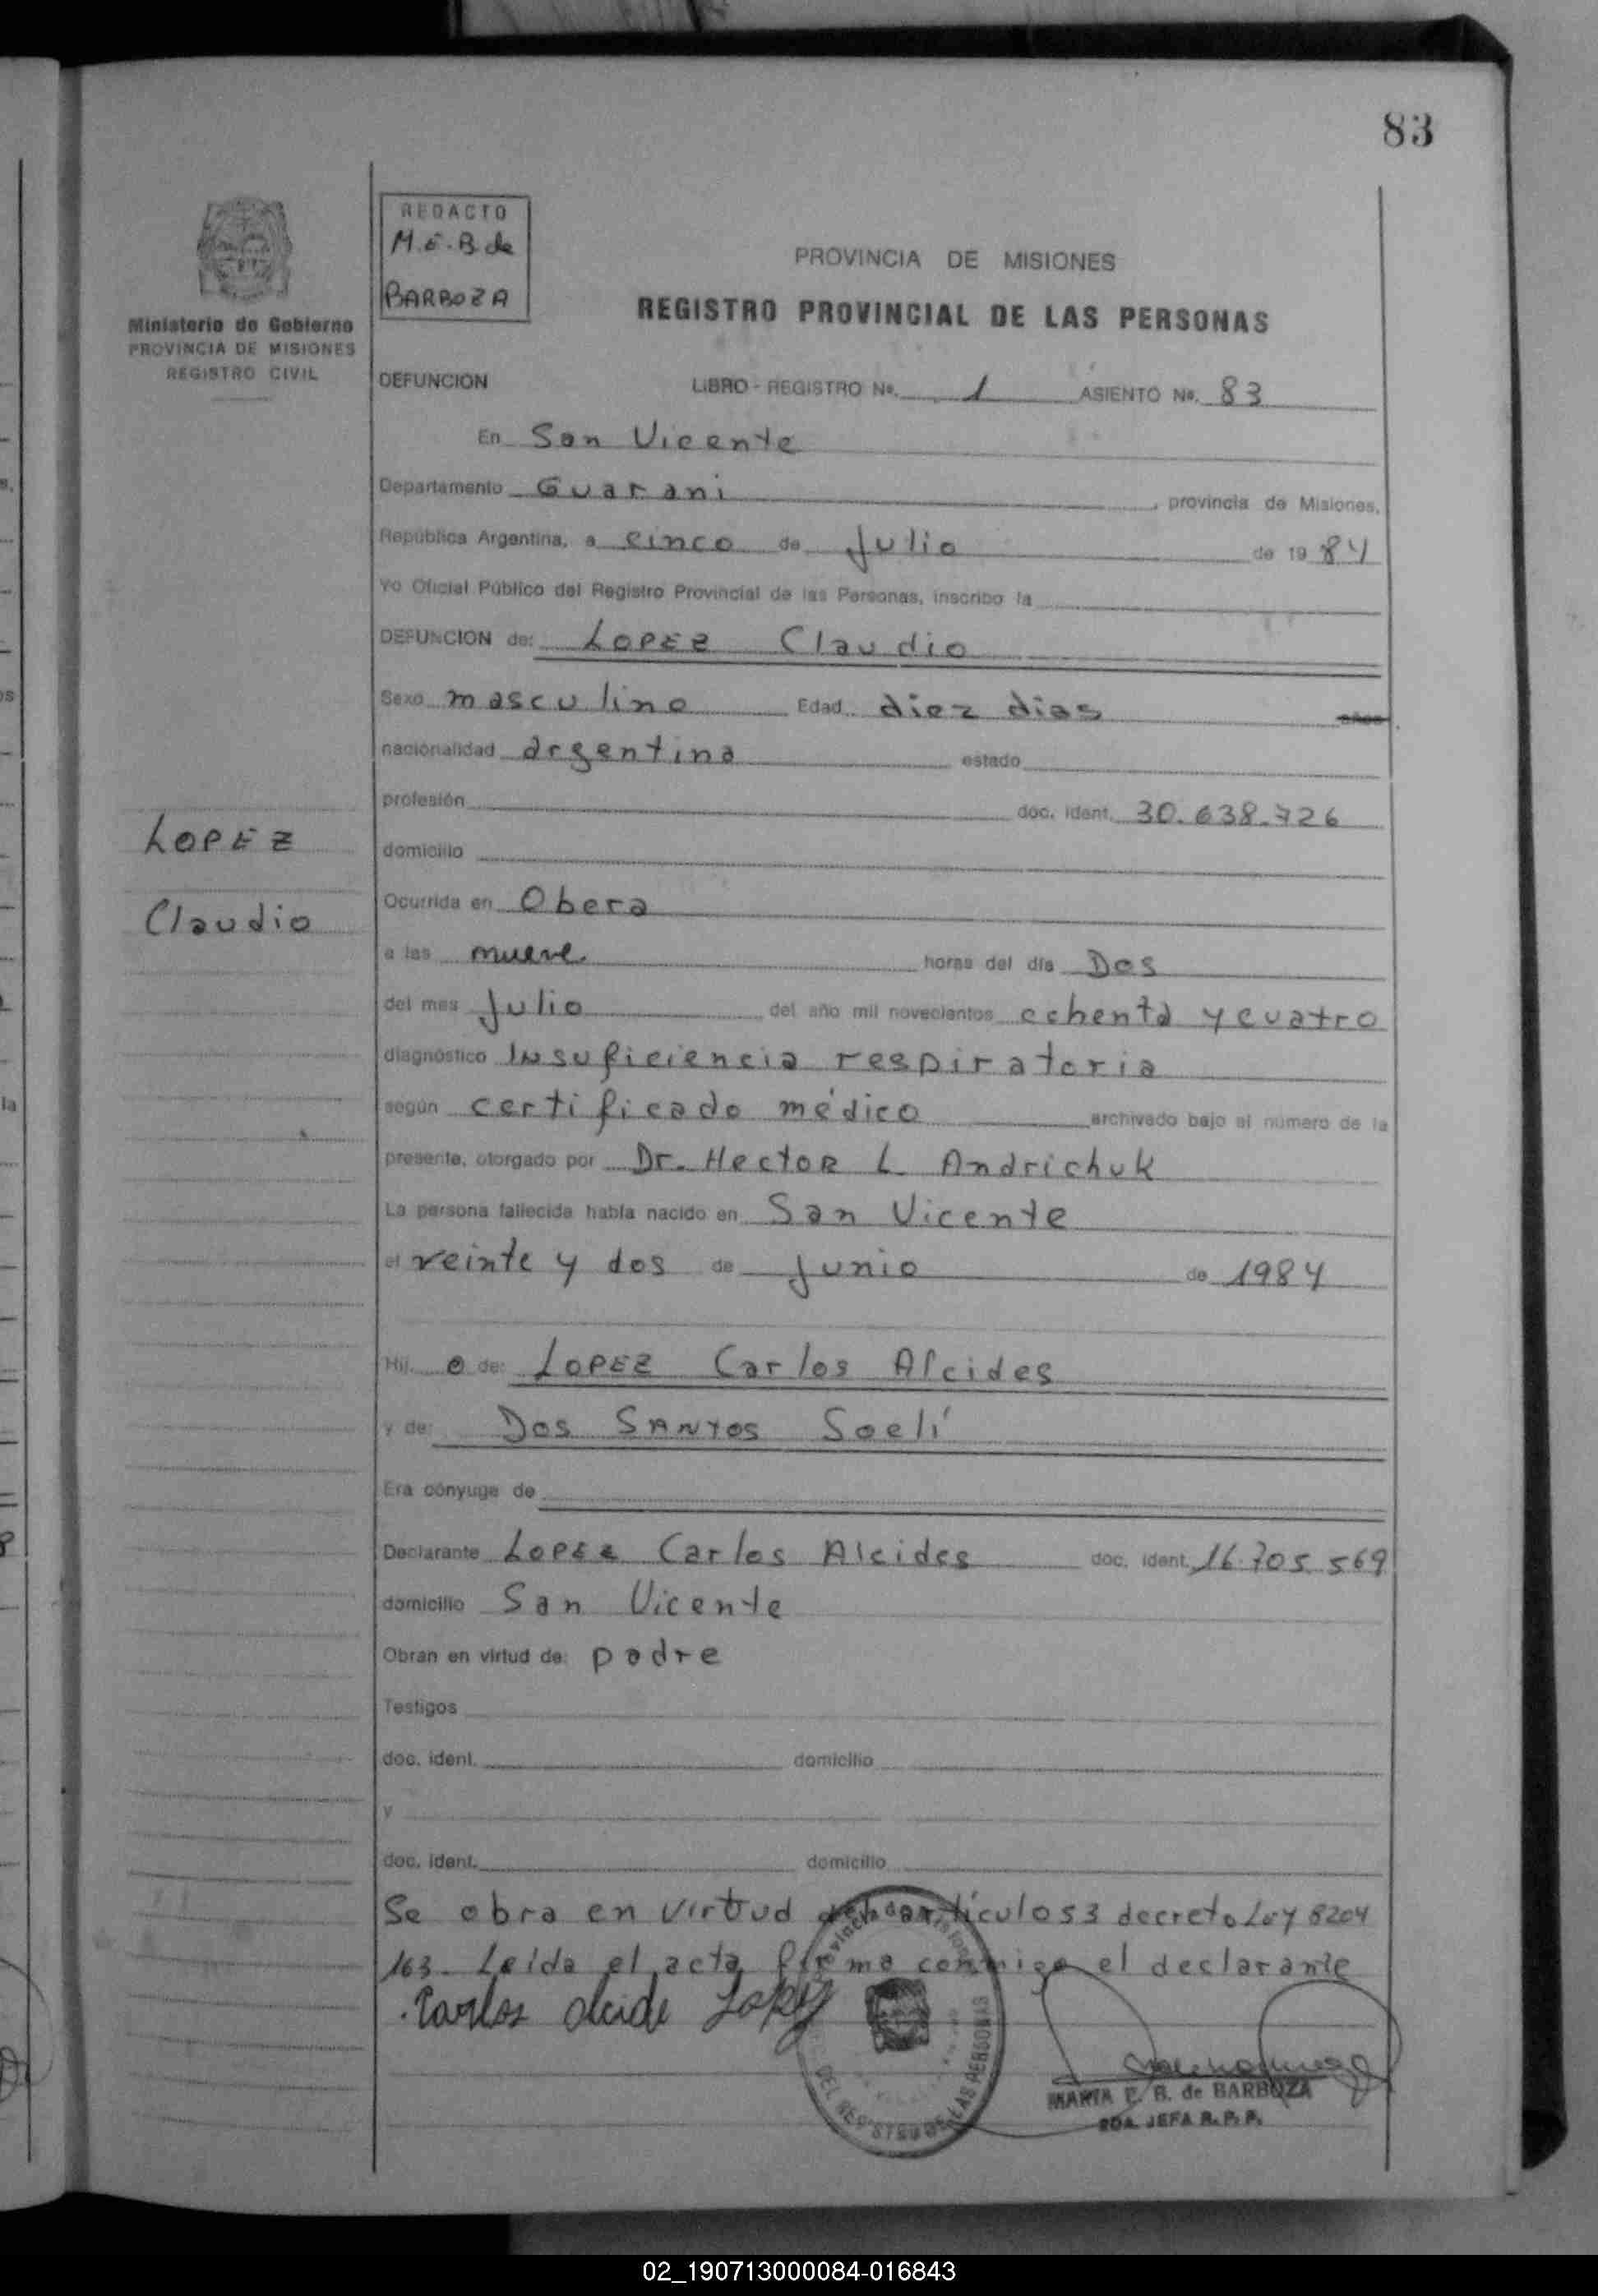 83
REDACTO
M.E.B de
BARBOZA
Ministerio de Gobierno
PROVINCIA DE MISIONES
REGISTRO CIVIL
PROVINCIA DE MISIONES
REGISTRO PROVINCIAL DE LAS PERSONAS
DEFUNCION LIBRO - REGISTRO Nº. 1 ASIENTO Nº. 83
En San Vicente
Departamento Guarani, provincia de Misiones,
República Argentina, a cinco de Julio de 19 84
Yo Oficial Público del Registro Provincial de las Personas, inscribo la
DEFUNCION de: LOPEZ Claudio
Sexo masculino Edad diez dias años
nacionalidad argentina estado
profesión doc. ident. 30.638.726
LOPEZ
Claudio
domicilio
Ocurrida en Obera
a las nueve horas del día Dos
del mes Julio del año mil novecientos ochenta y cuatro
diagnóstico Insuficiencia respiratoria
según certificado médico archivado bajo el número de la
presente, otorgado por Dr. Hector L Andrichuk
La persona fallecida había nacido en San Vicente
el veinte y dos de junio de 1984
Hij o de: LOPEZ Carlos Alcides
y de: Dos SANTOS Soelí
Era cónyuge de
Declarante LOPEZ Carlos Alcides doc. ident. 16.705.569
domicilio San Vicente
Obran en virtud de: padre
Testigos
doc. ident. domicilio
y
doc. ident. domicilio
Se obra en virtud del artículo 53 decreto Ley 8204
163. Leída el acta firma conmigo el declarante
Carlos alcide Lopez
DEL REGISTRO DE LAS PERSONAS
MARIA E. B. de BARBOZA
2DA. JEFA R. P. P.
02_190713000084-016843